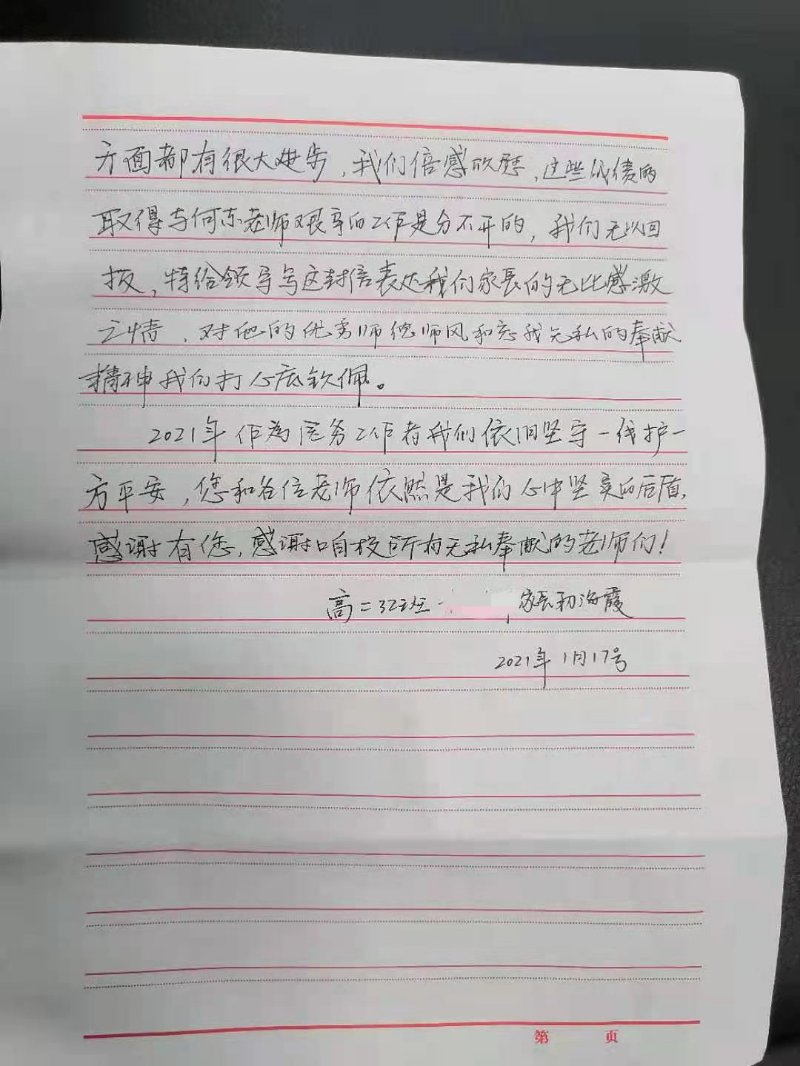 方面都有很大进步，我们倍感欣慰，这些成绩的
取得与何东老师艰辛的工作是分不开的，我们无以回
报，特给领导写这封信表达我们家长的无比感激
之情，对他的优秀师德师风和忘我无私的奉献
精神我们打心底钦佩。
2021年作为医务工作者我们依旧坚守一线护一
方平安，您和各位老师依然是我们心中坚实的后盾，
感谢有您，感谢咱校所有无私奉献的老师们！
高二32班 家长初海霞
2021年1月17号
第 页